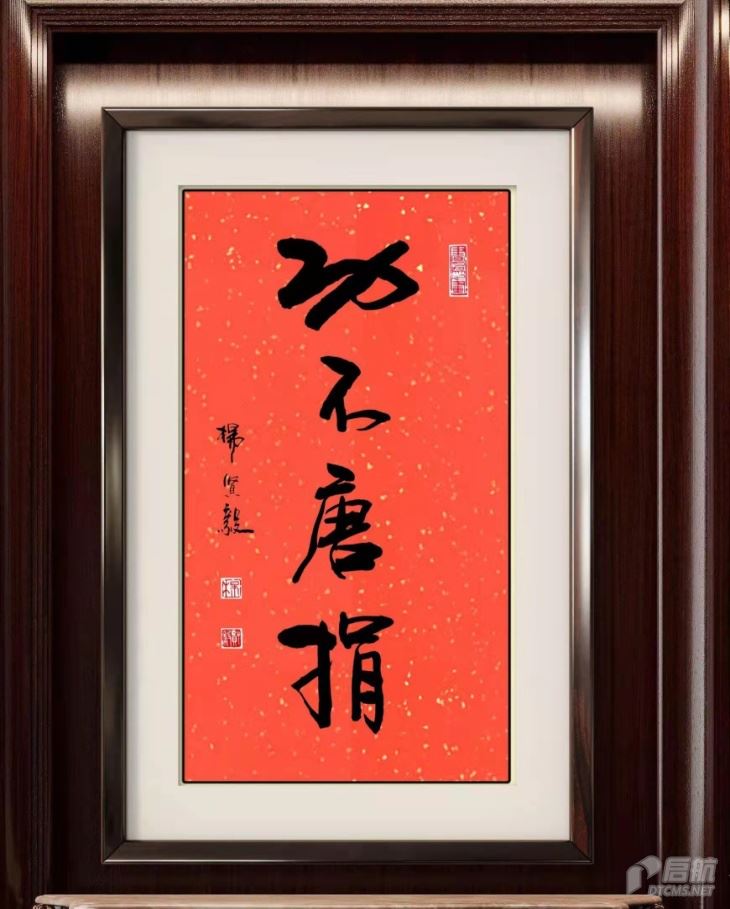 功不唐捐
杨贤毅
启航
DTCMS.NET